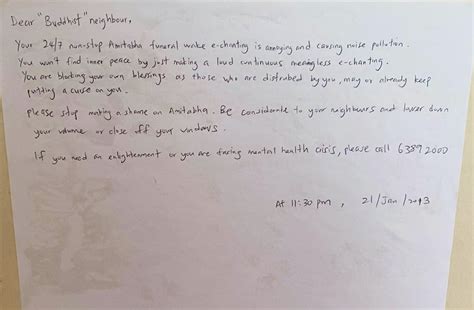 Dear "Buddhist" neighbour,
Your 24/7 non-stop Amitabha funeral wake e-chanting is annoying and causing noise pollution.
You won't find inner peace by just making a loud continuous meaningless e-chanting.
You are blocking your own blessings as those who are distrubed by you, may or already keep
putting a curse on you.
please stop making a shame on Amitabha. Be considerate to your neighbours and lower down
your volume or close off your windows.
If you need an enlightenment or you are facing mental health crisis, please call 6389 2000
At 11:30 pm, 21/Jan/